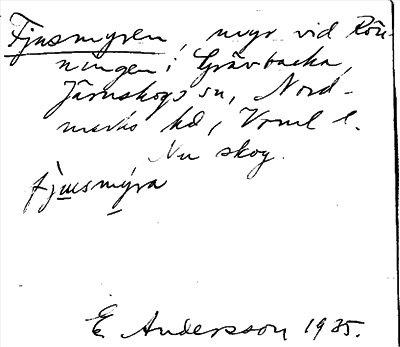 Fjusmyren, myr vid Rön-
ningen i Grävbacka,
Järnskogs sn, Nord-
marks hd, Vrml l.
Nu skog.
fjusmýra
E Andersson 1935.